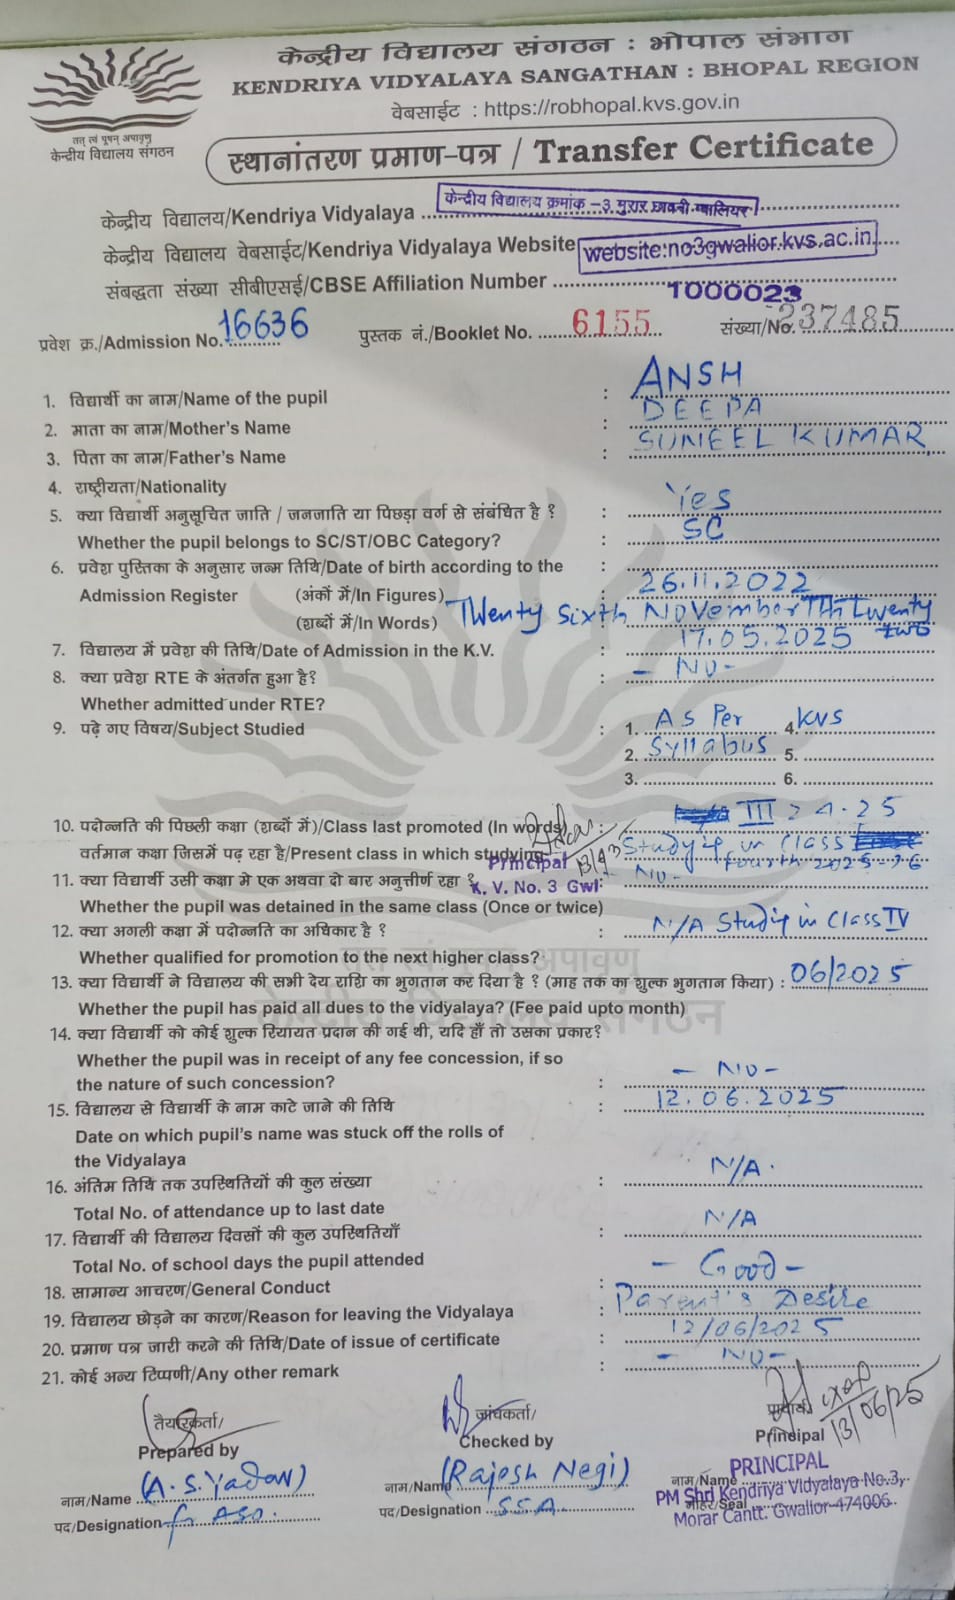 केन्द्रीय विद्यालय संगठन : भोपाल संभाग
KENDRIYA VIDYALAYA SANGATHAN : BHOPAL REGION
वेबसाईट : https://robhopal.kvs.gov.in
तत् त्वं पूषन् अपावृणु
केन्द्रीय विद्यालय संगठन
स्थानांतरण प्रमाण-पत्र / Transfer Certificate
केन्द्रीय विद्यालय/Kendriya Vidyalaya केन्द्रीय विद्यालय क्रमांक -3 मुरार छावनी ग्वालियर
केन्द्रीय विद्यालय वेबसाईट/Kendriya Vidyalaya Website website:no3gwalior.kvs.ac.in
संबद्धता संख्या सीबीएसई/CBSE Affiliation Number 1000023
प्रवेश क्र./Admission No. 16636 पुस्तक नं./Booklet No. 6155 संख्या/No. 237485
1. विद्यार्थी का नाम/Name of the pupil : ANSH
2. माता का नाम/Mother's Name : DEEPA
3. पिता का नाम/Father's Name : SUNEEL KUMAR
4. राष्ट्रीयता/Nationality
5. क्या विद्यार्थी अनुसूचित जाति / जनजाति या पिछड़ा वर्ग से संबंधित है ? : Yes
Whether the pupil belongs to SC/ST/OBC Category? : SC
6. प्रवेश पुस्तिका के अनुसार जन्म तिथि/Date of birth according to the :
Admission Register (अंकों में/In Figures) : 26.11.2022
(शब्दों में/In Words) Twenty Sixth November Twenty two
7. विद्यालय में प्रवेश की तिथि/Date of Admission in the K.V. : 17.05.2025
8. क्या प्रवेश RTE के अंतर्गत हुआ है? : - NO -
Whether admitted under RTE?
9. पढ़े गए विषय/Subject Studied : 1. As Per 4. KVS
2. Syllabus 5.
3. 6.
10. पदोन्नति की पिछली कक्षा (शब्दों में)/Class last promoted (In words) : III 24-25
वर्तमान कक्षा जिसमें पढ़ रहा है/Present class in which studying Studying in Class
fourth 2025-26
Principal
K. V. No. 3 Gwl
11. क्या विद्यार्थी उसी कक्षा मे एक अथवा दो बार अनुत्तीर्ण रहा ? : No -
Whether the pupil was detained in the same class (Once or twice)
12. क्या अगली कक्षा में पदोन्नति का अधिकार है ? : N/A Studying in Class IV
Whether qualified for promotion to the next higher class?
13. क्या विद्यार्थी ने विद्यालय की सभी देय राशि का भुगतान कर दिया है ? (माह तक का शुल्क भुगतान किया) : 06/2025
Whether the pupil has paid all dues to the vidyalaya? (Fee paid upto month)
14. क्या विद्यार्थी को कोई शुल्क रियायत प्रदान की गई थी, यदि हाँ तो उसका प्रकार?
Whether the pupil was in receipt of any fee concession, if so
the nature of such concession? : - NO -
15. विद्यालय से विद्यार्थी के नाम काटे जाने की तिथि : 12.06.2025
Date on which pupil's name was stuck off the rolls of
the Vidyalaya
16. अंतिम तिथि तक उपस्थितियों की कुल संख्या : N/A.
Total No. of attendance up to last date
17. विद्यार्थी की विद्यालय दिवसों की कुल उपस्थितियाँ : N/A
Total No. of school days the pupil attended
18. सामान्य आचरण/General Conduct : - Good -
19. विद्यालय छोड़ने का कारण/Reason for leaving the Vidyalaya : Parent's Desire
20. प्रमाण पत्र जारी करने की तिथि/Date of issue of certificate : 12/06/2025
21. कोई अन्य टिप्पणी/Any other remark : - NO -
तैयारकर्ता/ जांचकर्ता/ प्राचार्य/ 13/06/25
Prepared by Checked by Principal
नाम/Name (A.S. Yadav) नाम/Name (Rajesh Negi) नाम/Name PRINCIPAL
पद/Designation ASO. पद/Designation SSA मोहर/Seal PM Shri Kendriya Vidyalaya No.3,
Morar Cantt. Gwalior-474006